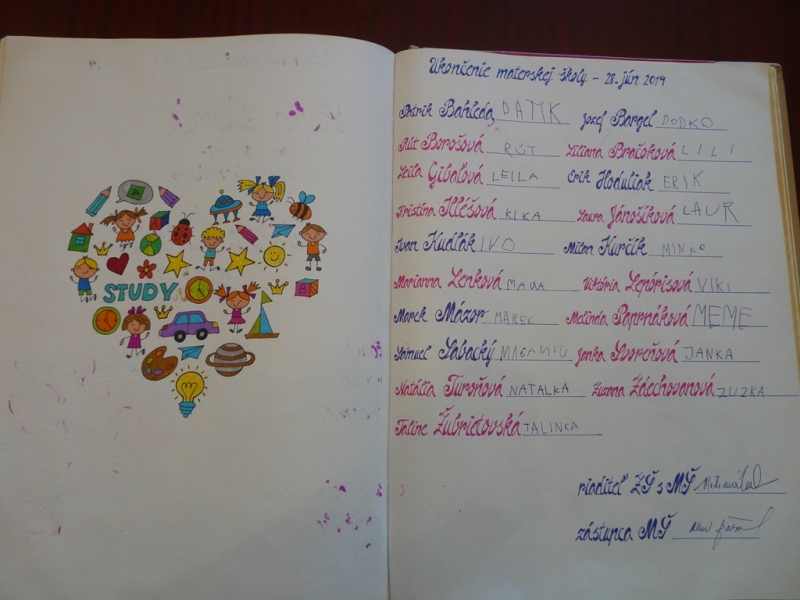 STUDY
Ukončenie materskej školy - 28. jún 2019
Patrik Bahleda PATIK Jozef Bargel DODKO
Rút Borošová RÚT Liliana Bračoková LILI
Leila Gibaľová LEILA Erik Hoduliak ERIK
Kristína Illéšová KIKA Laura Jánošíková LAUR
Ivan Kudlák IVO Milan Kurčík MINKO
Marianna Lenková MAJA Viktória Lepórisová VIKI
Marek Mázor MAREK Melinda Paprnáková MEME
Samuel Sabacký Janka Svoreňová JANKA
Natália Turoňová NATALKA Zuzana Záechovanová ZUZKA
Taline Žubrietovská TALINKA
riaditeľ ZŠ s MŠ
zástupca MŠ